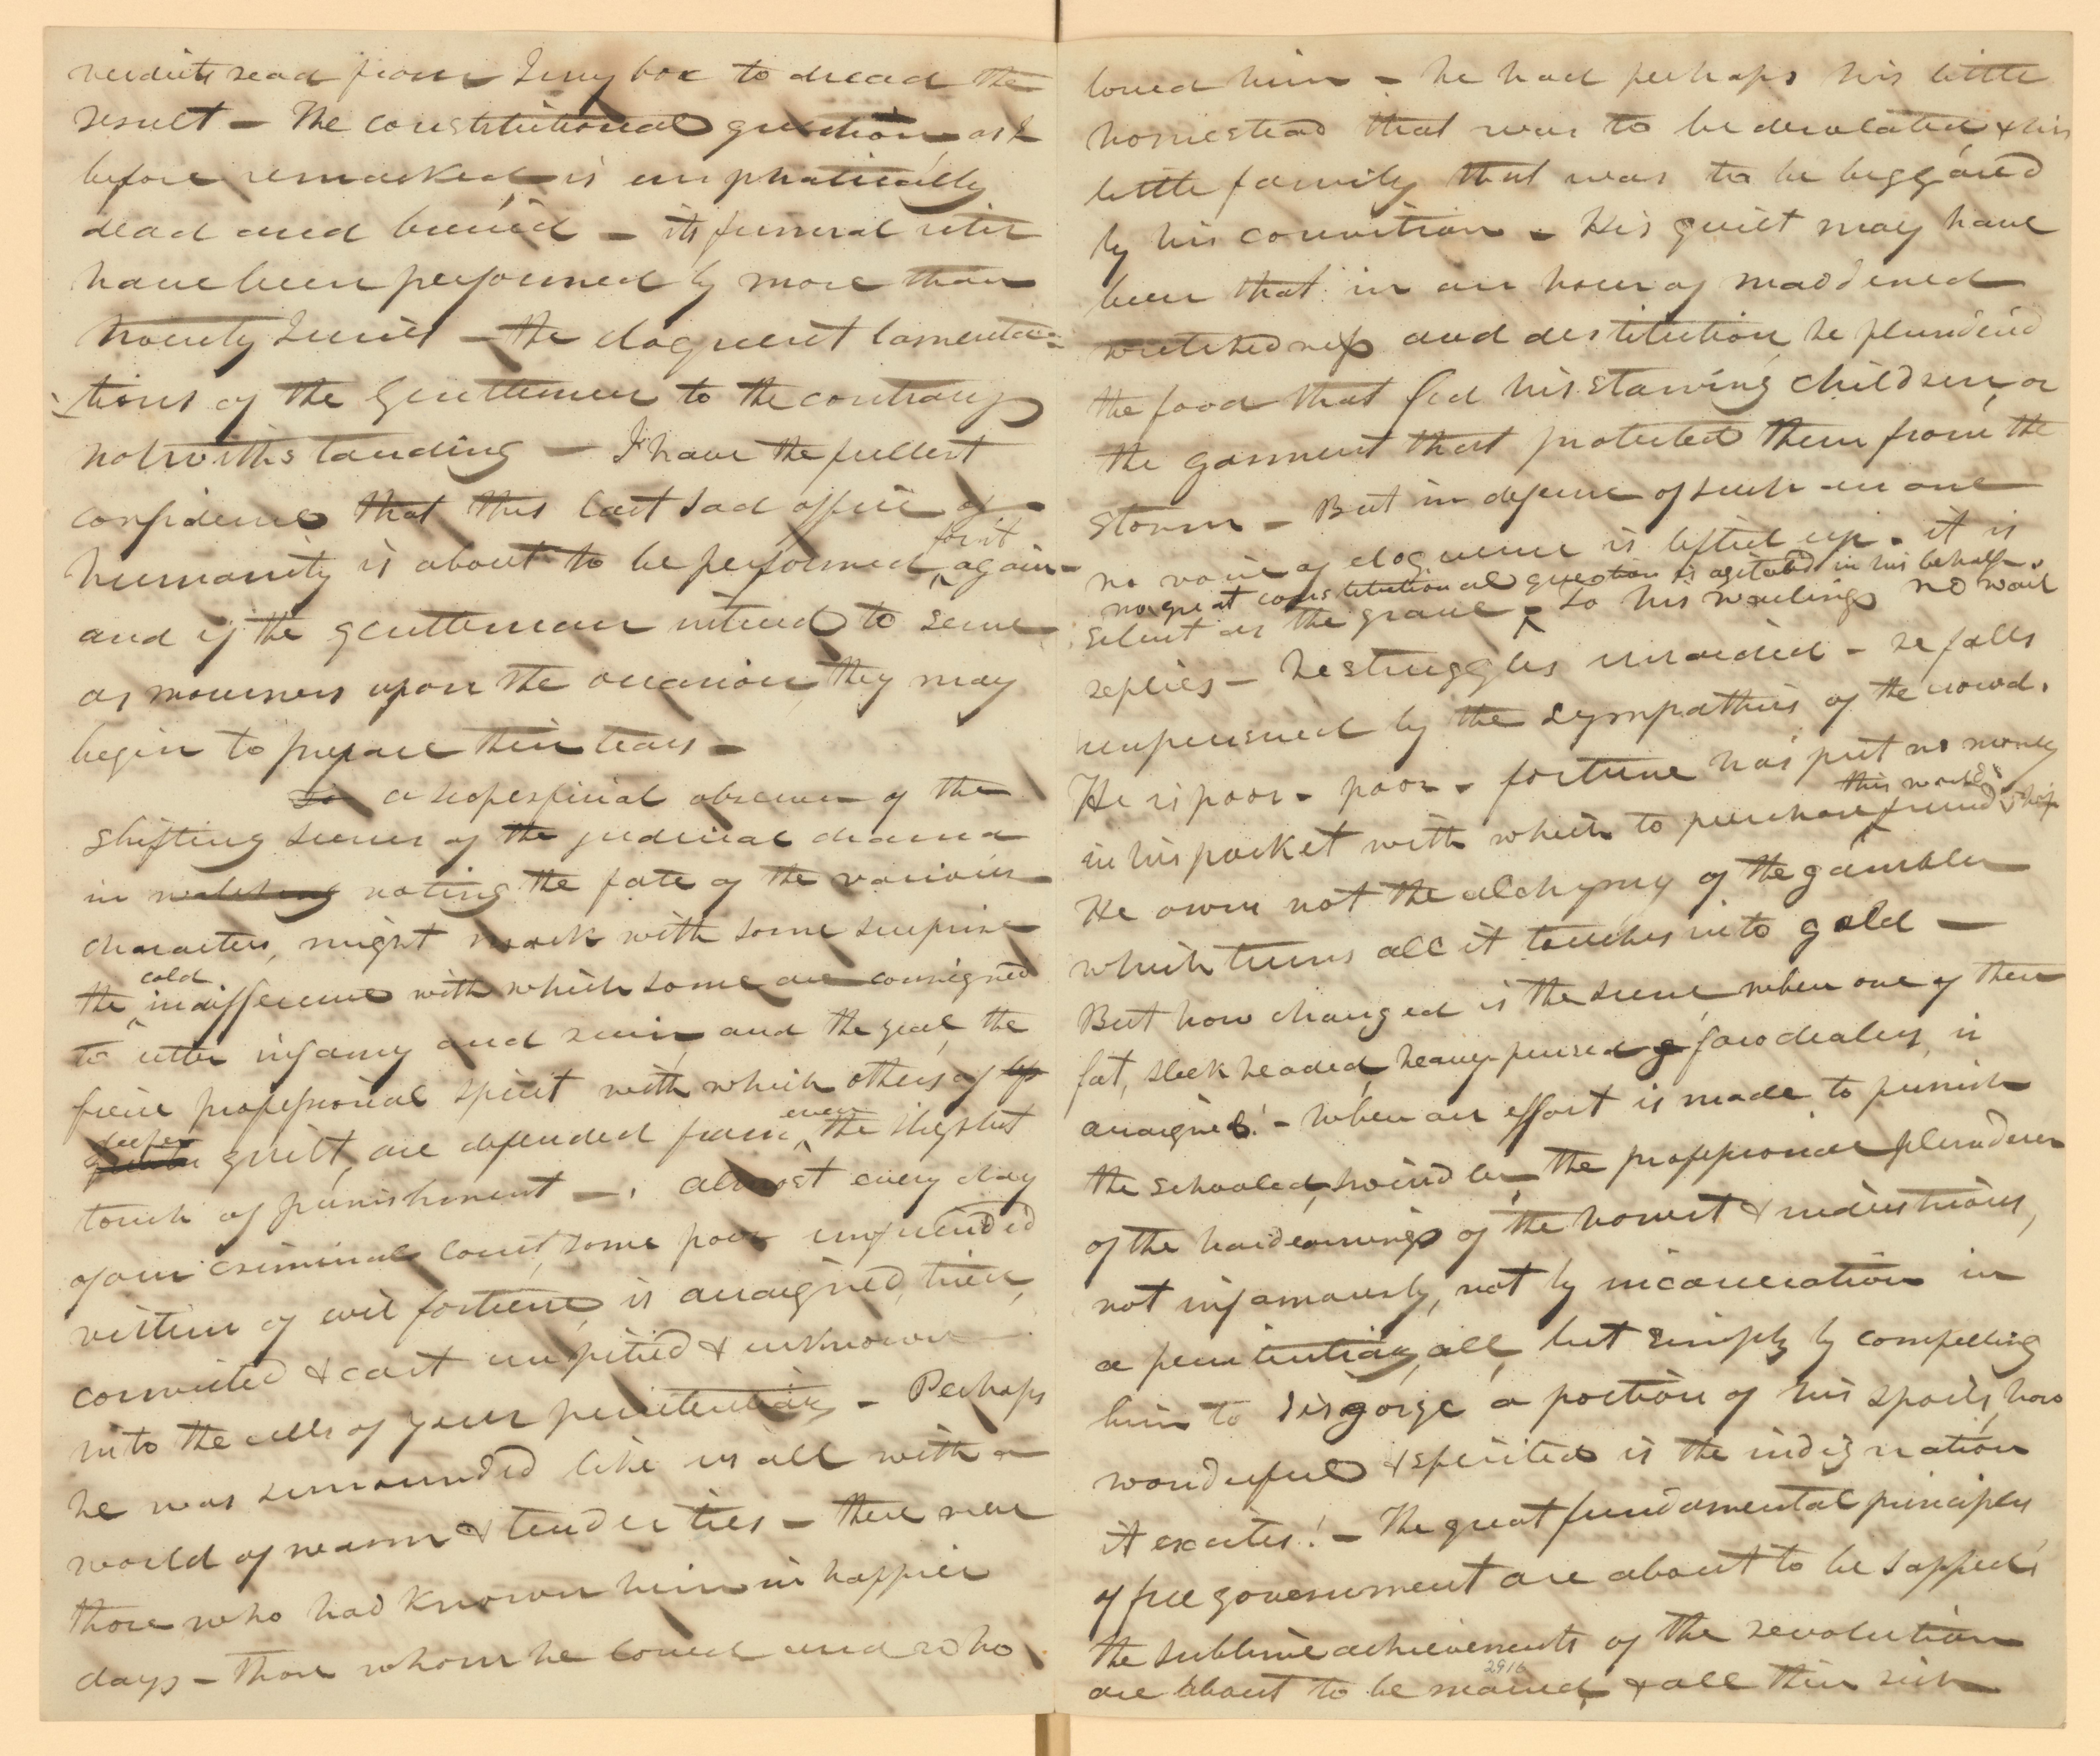 verdicts read from Jury box to dread the
result – The constitutional question, as I
before remarked, is emphatically
dead and buried – its funeral rites
have been performed by more than
twenty Juries – the eloquent lamenta-
tions of the Gentlemen to the contrary
notwithstanding – I have the fullest
confidence that this last sad office of
for it
humanity is about to be performed again –
and if the gentlemen intend to serve
as mourners upon the occasion, they may
begin to prepare their tears –
To a superficial observer of the
shifting scenes of the judicial drama
in watching noting the fate of the various
characters, might mark with some surprise
cold
the indifference with which some are consigned
to utter infamy and ruin, and the zeal, the
fierce professional spirit with which others of
deeper even
guilt, are defended from the slightest
touch of punishment – almost every day
of our criminal court, some poor unfriended
victim of evil fortune, is arraigned, tried,
convicted & cast unpitied & unknown
into the cells of your penitentiary – Perhaps
he was surrounded like us all with a
world of warm & tender ties – there were
those who had known him in happier
days – those whom he loved and who
loved him – he had perhaps his little
homestead that was to be desolated & his
little family that was to be beggared
by his conviction – His guilt may have
been that in an hour of maddened
wretchedness and destitution, he plundered
the food that fed his starving children, or
the garment that protected them from the
storm – But in defence of such an one
no voice of eloquence is lifted up – it is
no great constitutional question is agitated in his behalf –
silent as the grave – to his wailings no wail
replies – he struggles unaided – he falls
by the sympathies of the crowd.
He is poor – poor – fortune has put no money
this world's
in his pocket with which to purchase friendship
He owns not the alchymy of the gambler
which turns all it touches into gold –
But how changed is the scene, when one of these
fat, sleek headed, heavy-pursed faro dealers, is
arraigned! – When an effort is made to punish
the schooled swindler, the professional plunderer
of the hard earnings of the honest & industrious,
not infamously, not by incarceration in
a penitentiary, all, but simply by compelling
him to disgorge a portion of his spoils, how
wonderful & spirited is the indignation
it excites! – The great fundamental principles
of free government are about to be sapped;
the sublime achievements of the revolution
2916
are about to be marred, & all their rich